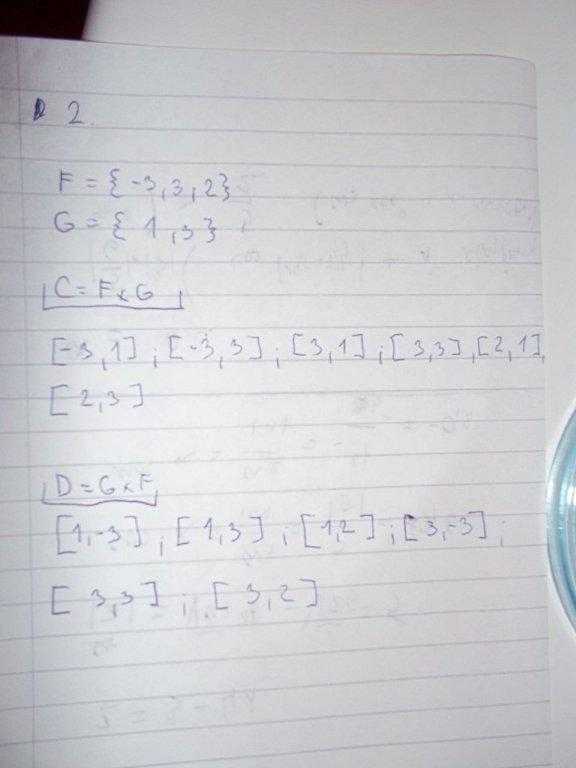 2.
F = {-3, 3, 2}
G = { 1 , 3 }
C = F x G
[-3, 1] ; [-3, 3] ; [3, 1] ; [3, 3] , [2, 1],
[2, 3]
D = G x F
[1, -3] ; [1, 3] ; [1, 2] ; [3, -3] ;
[3, 3] ; [3, 2]